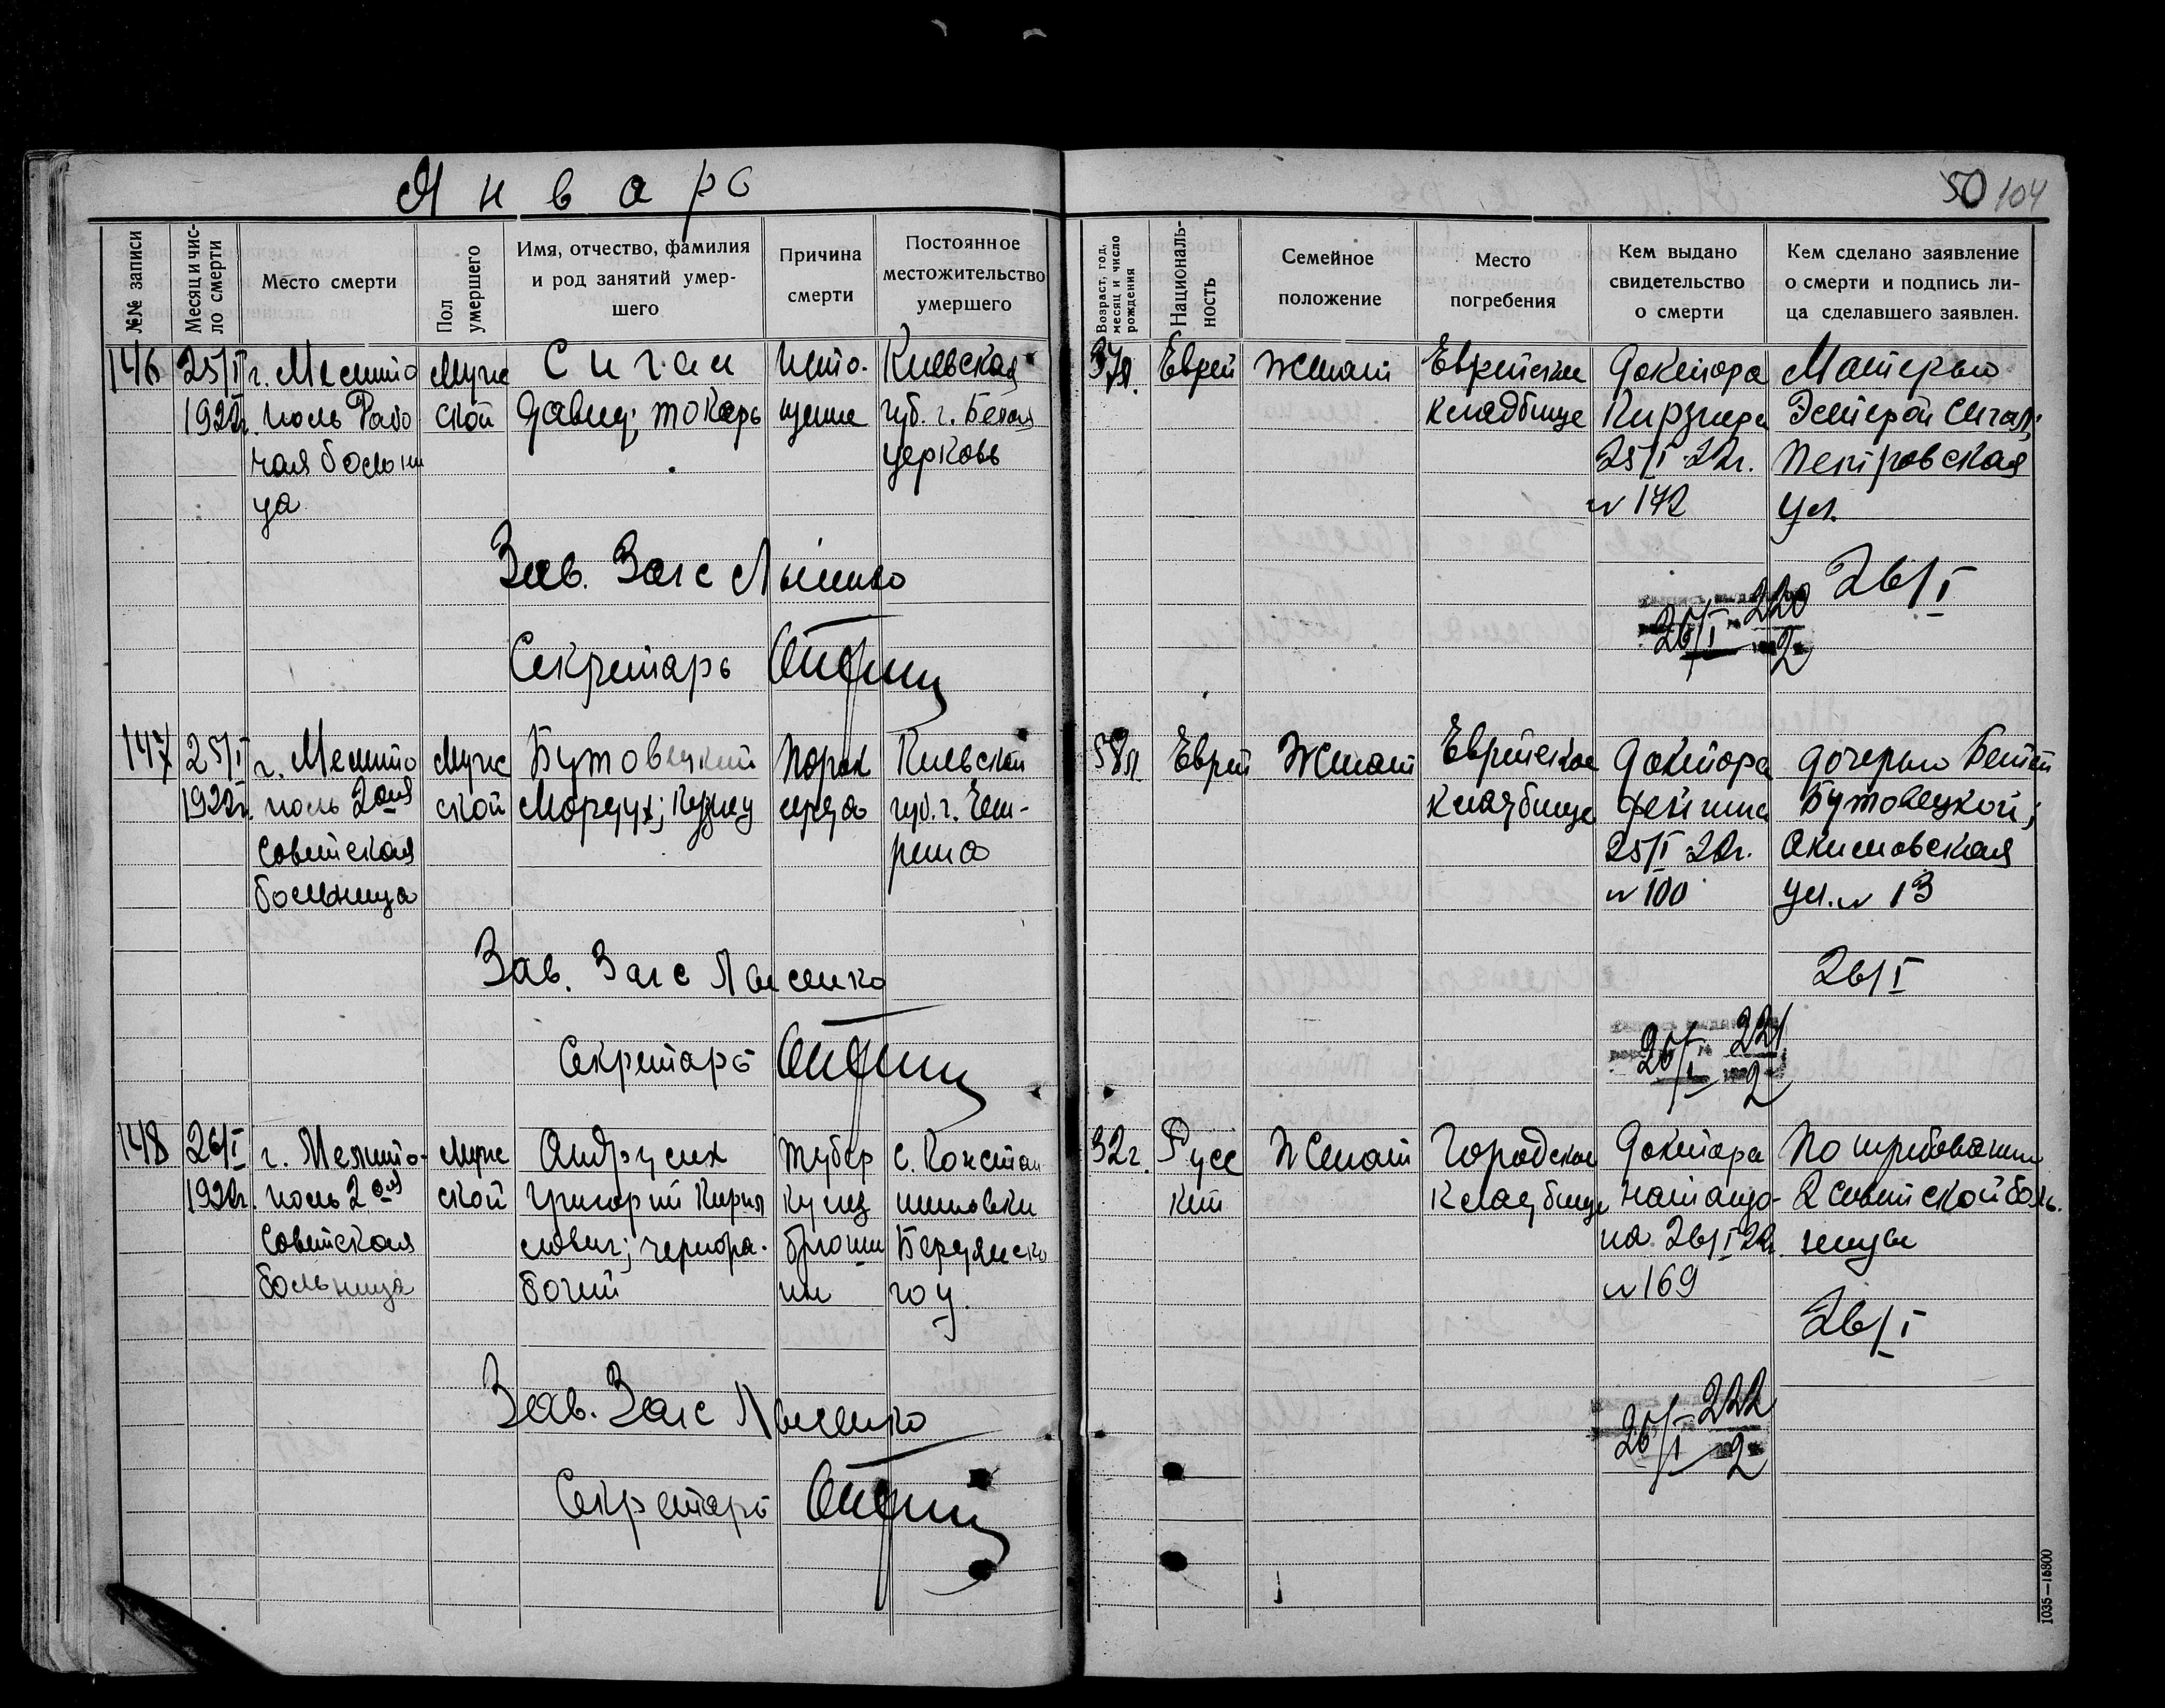 Январь
50 104
№№ записи
Месяц и чис-
ло смерти
Место смерти
Пол
умершего
Имя, отчество, фамилия
и род занятий умер-
шего
Причина
смерти
Постоянное
местожительство
умершего
Возраст, год,
месяц и число
рождения
Националь-
ность
Семейное
положение
Место
погребения
Кем выдано
свидетельство
о смерти
Кем сделано заявление
о смерти и подпись ли-
ца сделавшего заявлен.
146
25/I
1922г.
г. Мелито
поль Рабо
чая больни
ца
Муж
ской
Сигал
Давид; токарь
Исто-
щение
Киевская
губ. г. Белая
церковь
37л.
Еврей
Женат
Еврейское
кладбище
Доктора
Кирзнера
25/I 22г.
№ 172
Матерью
Эстерой Сигал;
Петровская
ул.
Зав. Загс Лысенко
26/I
26/I 220
2
Секретарь
147
25/I
1922г.
г. Мелито
поль 2ая
Советская
больница
Муж
ской
Бутовецкий
Мордух; кузнец
Порок
сердца
Киевской
губ. г.
58л.
Еврей
Женат
Еврейское
кладбище
Доктора
25/I 22г.
№ 100
дочерью
Бутовецкой;
Акимовская
ул. № 13
Зав. Загс Лысенко
26/I
26/I 221
2
Секретарь
148
26/I
1922г.
г. Мелито-
поль 2ая
Советская
больница
Муж
ской
Андрусих
Григорий Кирил
лович; чернора-
бочий
Тубер
кулез
брюши
ны
с. Констан
тиновки
Бердянско
го у.
32г.
Русс
кий
Женат
Городское
кладбище
Доктора
Натанзо-
на 26/I 22г.
№ 169
По требованию
2 Советской боль-
ницы
26/I
Зав. Загс Лысенко
26/I 222
2
Секретарь
1035—16800